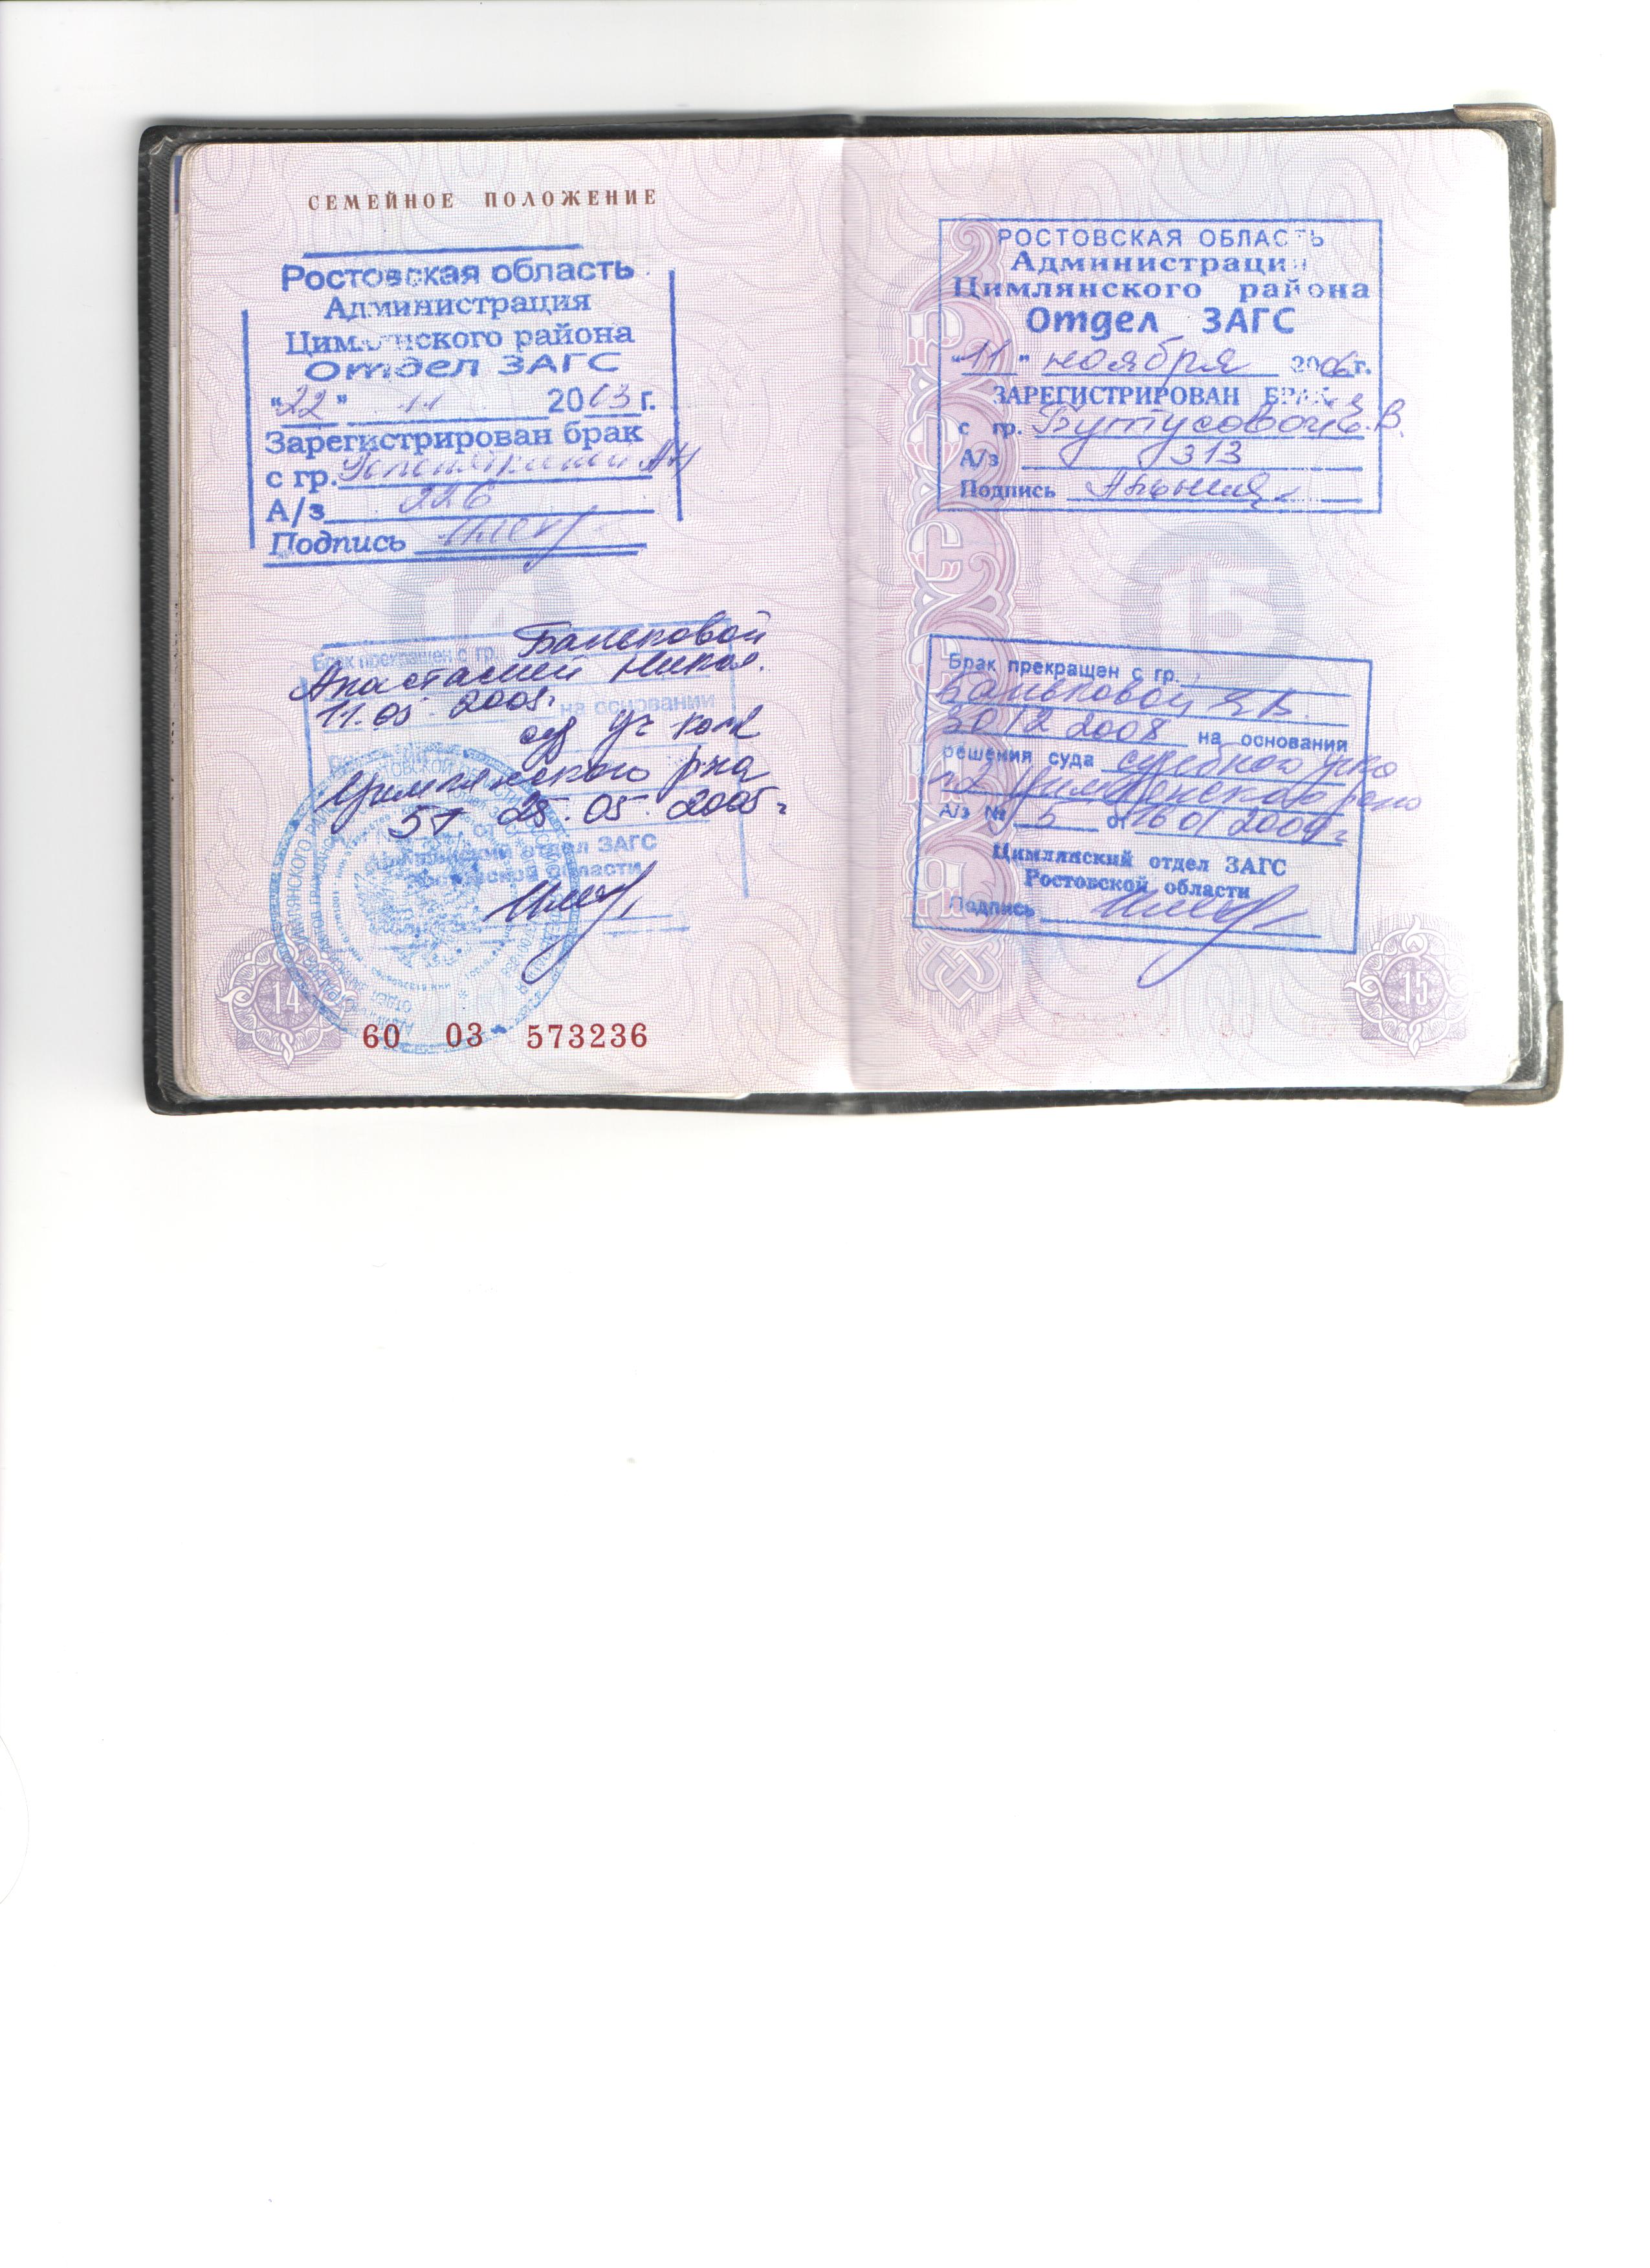 СЕМЕЙНОЕ ПОЛОЖЕНИЕ
Ростовская область
Администрация
Цимлянского района
Отдел ЗАГС
"22" 11 2003г.
Зарегистрирован брак
с гр. А.Н
А/з 226
Подпись
Брак прекращен с гр. Баньковой
Анастасией Никол.
11.05.2005г. на основании
суд уч №2
Цимлянского р-на
51 25.05.2005г
Цимлянский отдел ЗАГС
Ростовской области
14
60 03 573236
РОСТОВСКАЯ ОБЛАСТЬ
Администрация
Цимлянского района
Отдел ЗАГС
"11" ноября 2006г.
ЗАРЕГИСТРИРОВАН БРАК
с гр. Бутусовой Е.В.
А/з 313
Подпись
15
Брак прекращен с гр.
Баньковой Е.В.
30 12 2008 на основании
решения суда судебного уч-ка
№2 Цимлянского района
А/з № 5 от 16 01 2009г
Цимлянский отдел ЗАГС
Ростовской области
Подпись
15
РОССИЯ